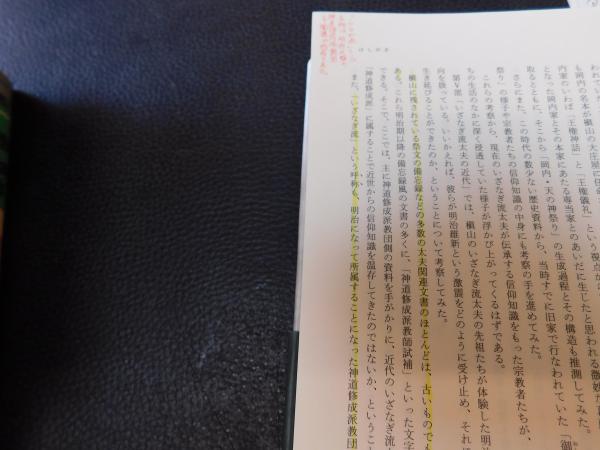 はしがき
も岡内の名本が槇山の大庄屋に任
内家のいわば「王権神話」と「王権儀礼」という視点か
となった岡内家とその本家にあたる専当家とのあいだに生じたと思われる微妙な
取るとともに、そこから「岡内・天の神祭り」の生成過程とその構造も推測してみた。
さらにまた、この時代の数少ない歴史資料から、当時すでに旧家で行なわれていた「御
祭り」の様子や宗教者たちの信仰知識の中身にも考察の手を進めてみた。
これらの考察から、現在のいざなぎ流太夫が伝承する信仰知識をもった宗教者たちが、
ちの生活のなかに深く浸透していた様子が浮かび上がってくるはずである。
第Ⅴ部「いざなぎ流太夫の近代」では、槇山のいざなぎ流太夫の先祖たちが体験した明
向を扱っている。いいかえれば、彼らが明治維新という激震をどのように受け止め、それに
生き延びることができたのか、ということについて考察してみた。
槇山に残されている祭文の備忘録などの多数の太夫関連文書のほとんどは、古いものでも
ある。これら明治期以降の備忘録風の文書の多くに、「神道修成派教師試補」といった文字
できる。そこで、ここでは、主に神道修成派教団側の資料を手がかりに、近代のいざなぎ流太
「神道修成派」に属することで近世からの信仰知識を温存してきたのではないか、というこ
また、「いざなぎ流」という呼称も、明治になって所属することになった神道修成派教団